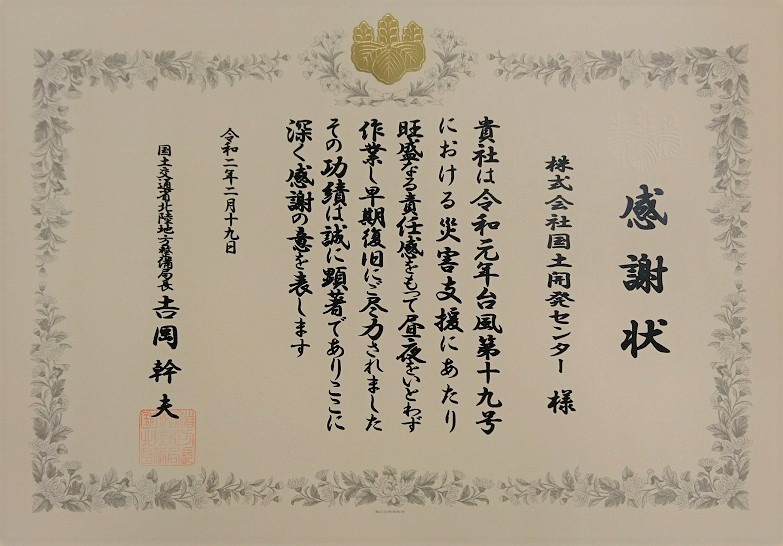 感謝状
株式会社国土開発センター 様
貴社は令和元年台風第十九号
における災害支援にあたり
旺盛なる責任感をもって昼夜をいとわず
作業し早期復旧にご尽力されました
その功績は誠に顕著でありここに
深く感謝の意を表します
令和二年二月十九日
国土交通省北陸地方整備局長 吉岡幹夫